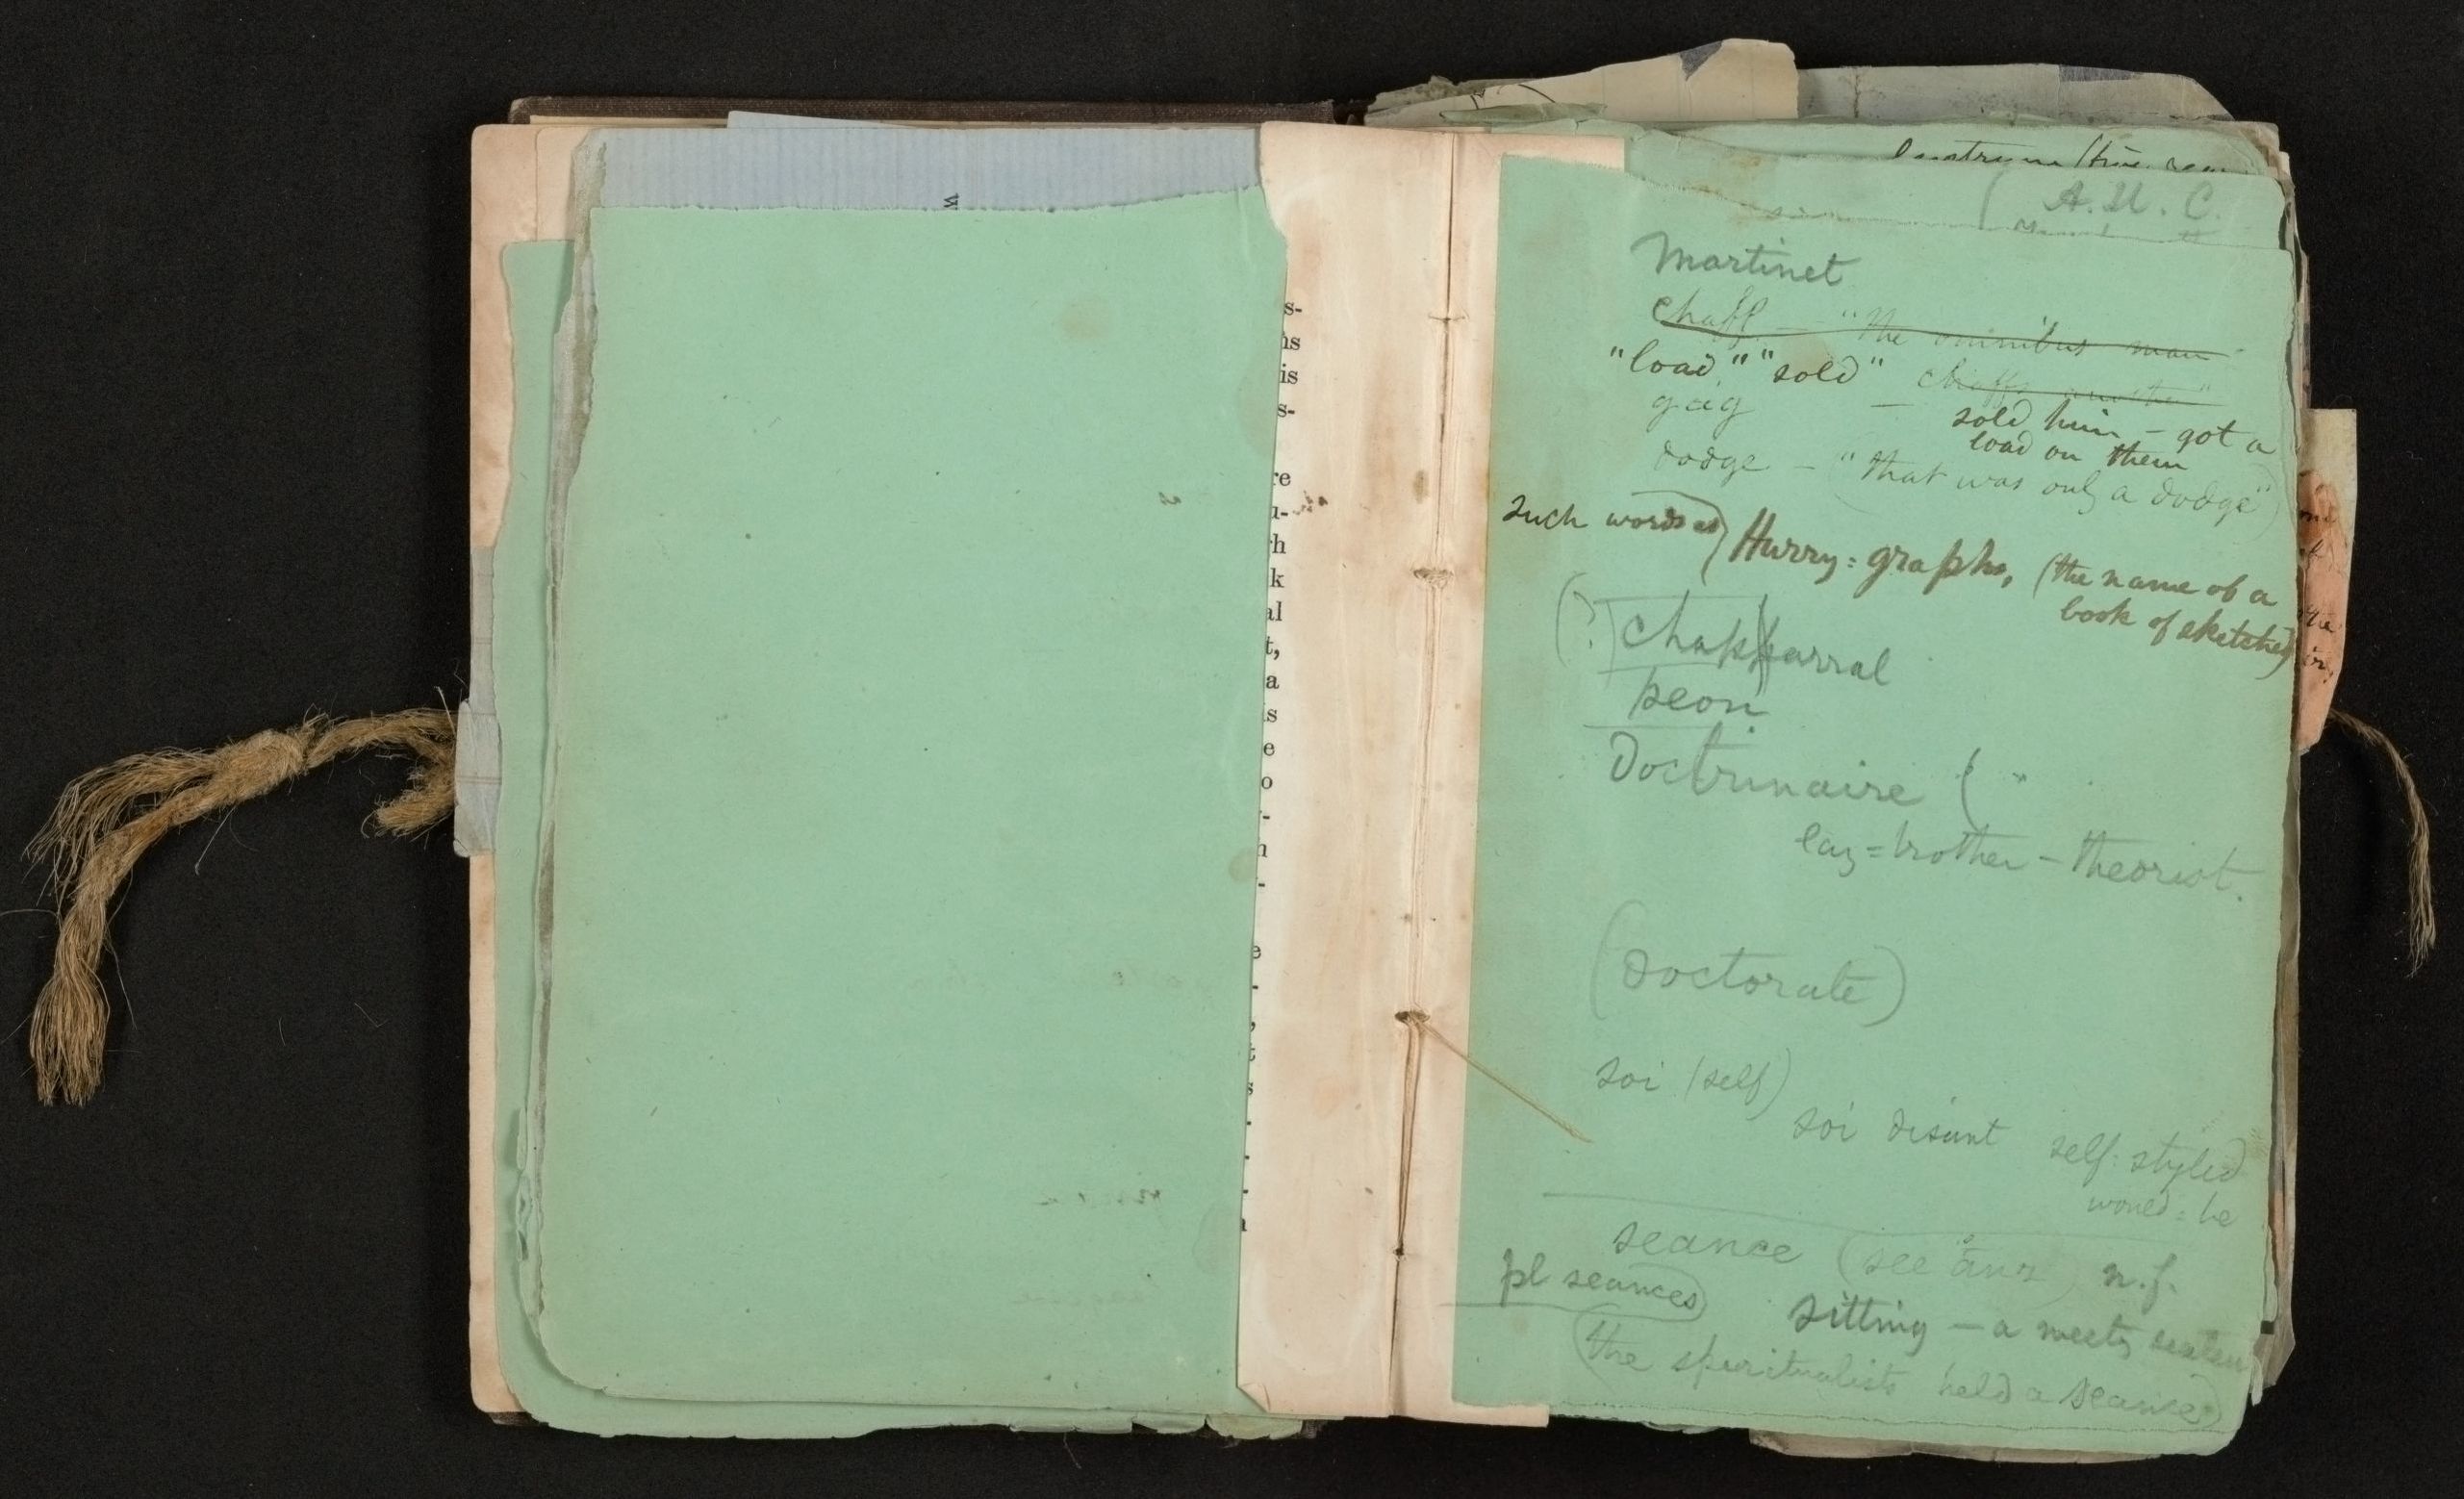 s-
is
is
s-
re
u-
h
k
al
t,
a
s
e
o
-
n
-
e
-
,
t
s
-
-
-
a
A. U. C.
Martinet
chaff — "the omnibus man
"load" "sold" — chaffs another"
gag
sold him — got a
load on them
dodge — ("that was only a dodge")
such words as) Hurry=graphs, (the name of a
book of sketches)
(?) chapparral
peon
Doctrinaire (
lay=brother — theorist.
(doctorate)
soi (self)
soi disant self=styled
would=be
seance (see ans) n.f.
pl seances)
sitting — a meetg
(the spiritualists held a seance)